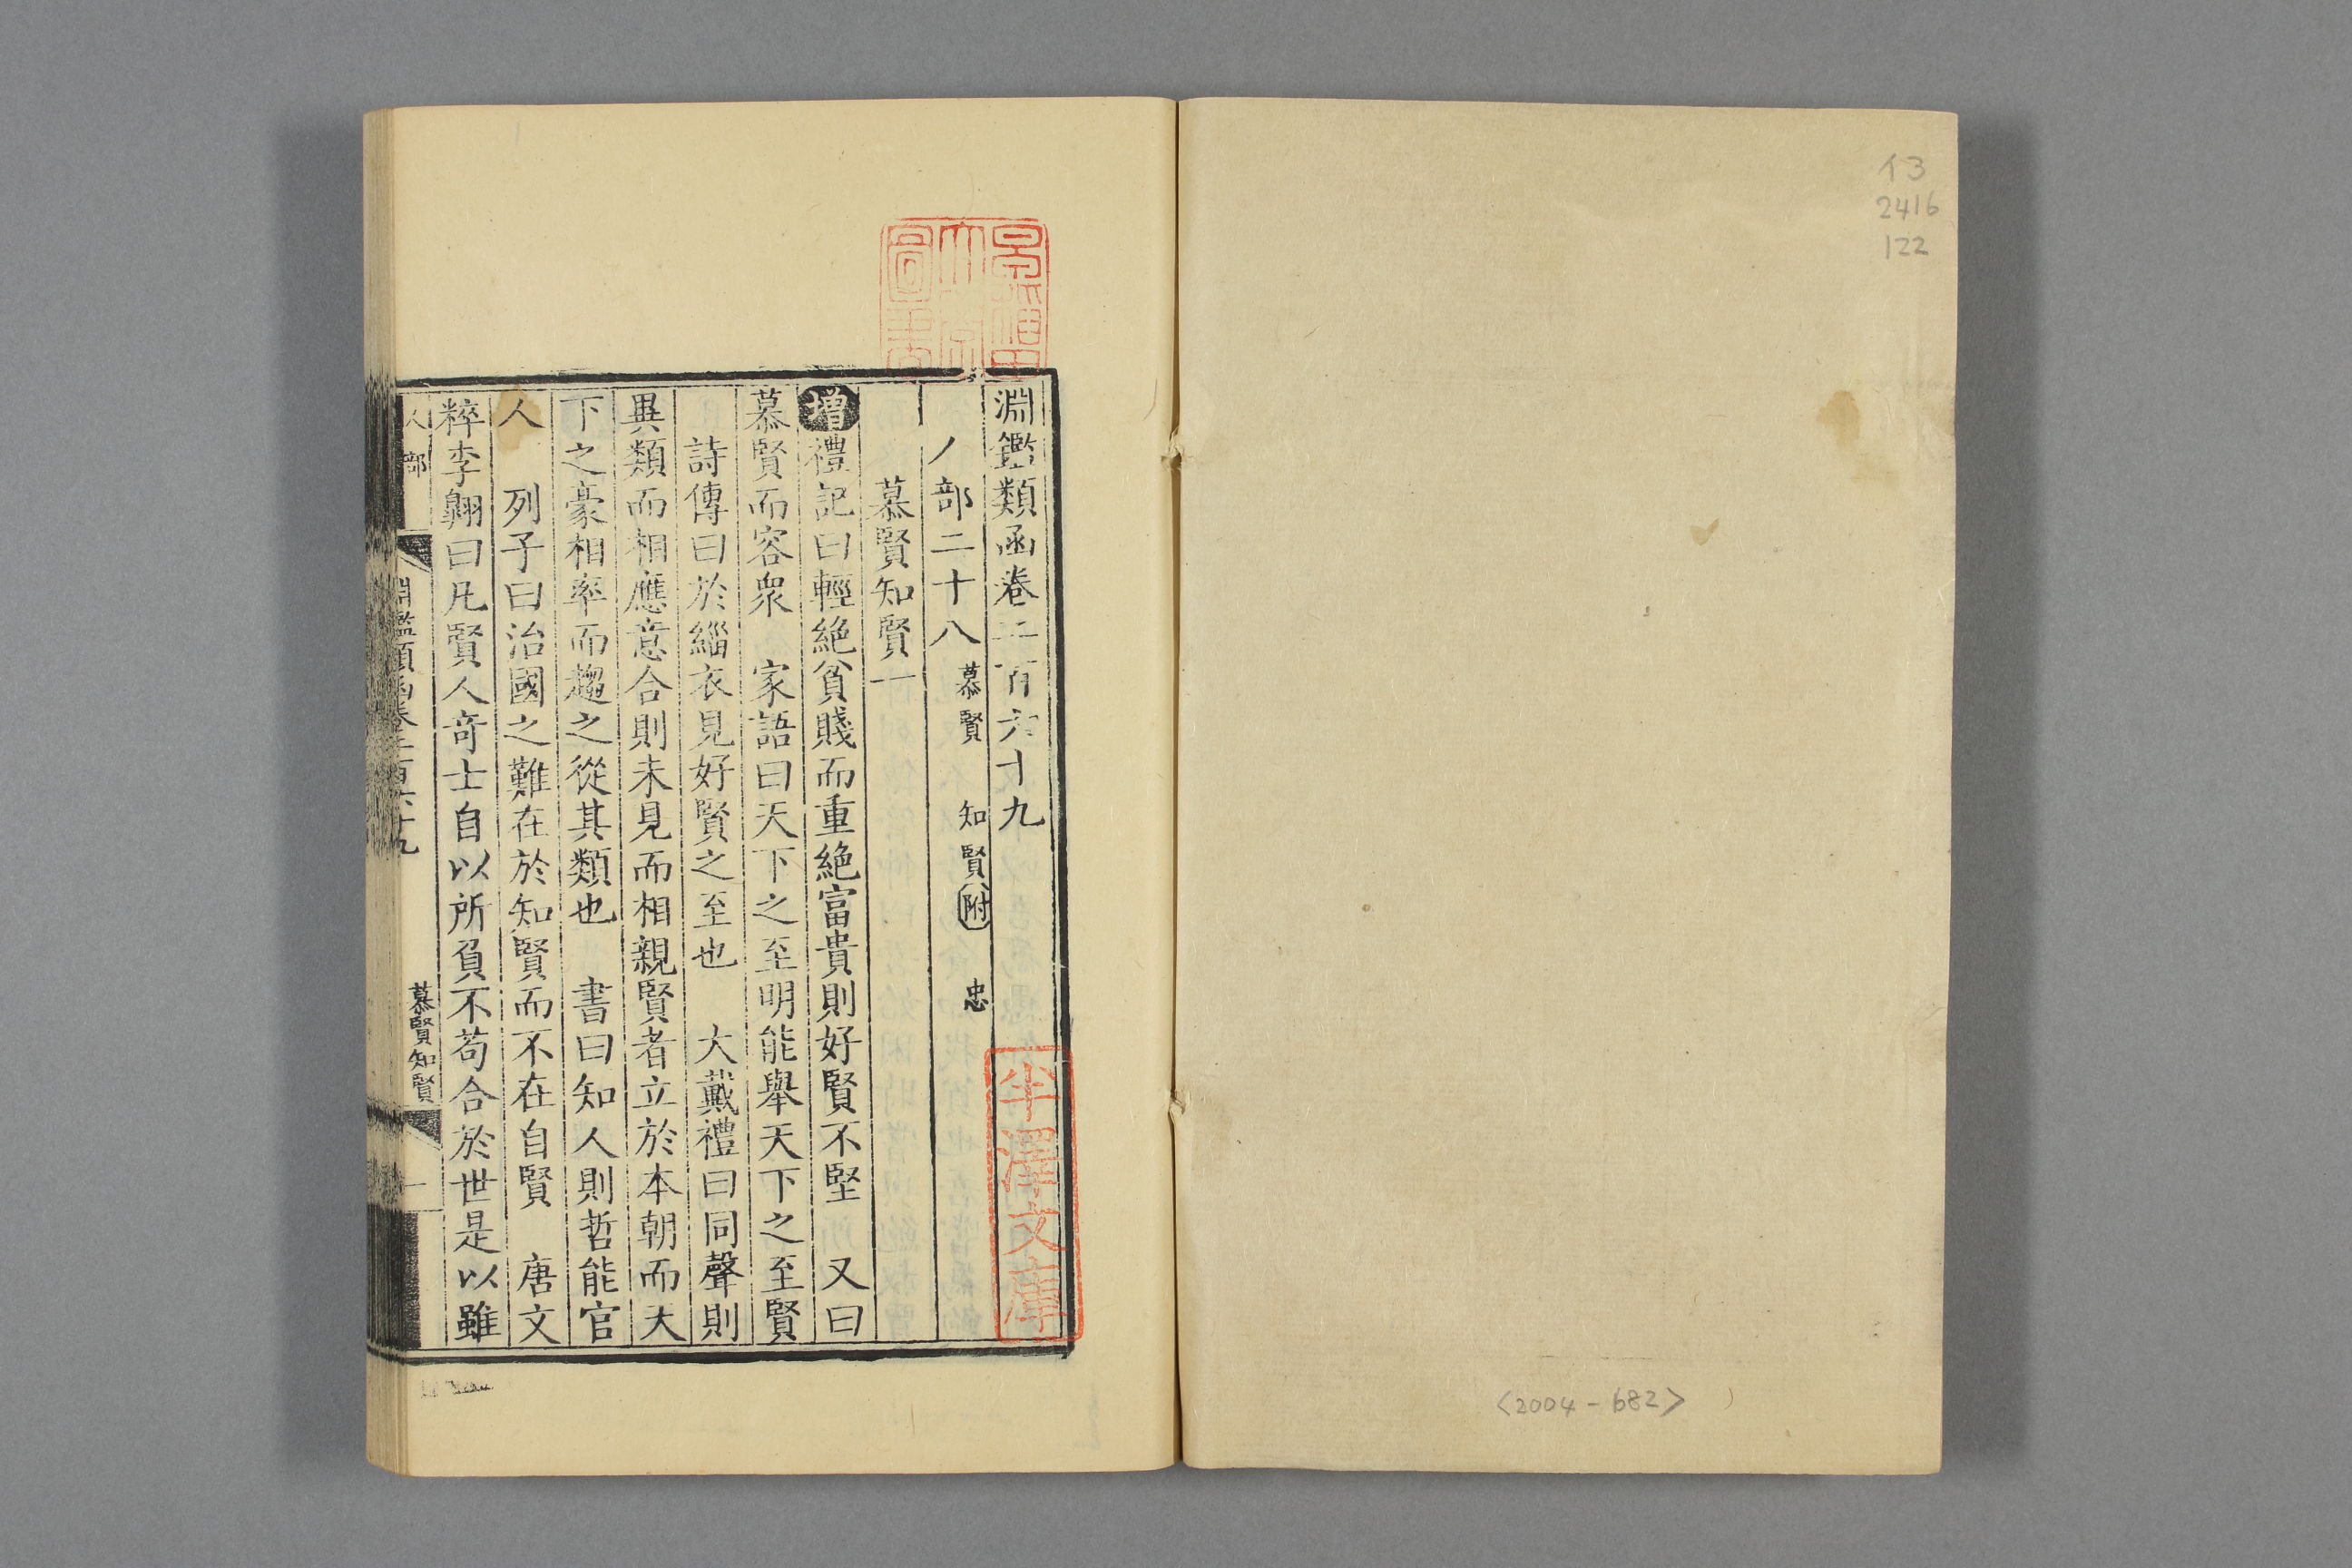 イ3
2416
122
<2004-682>
早稲田
大學
圖書
淵鑑類函卷二百六十九
人部二十八 慕賢 知賢附 忠
慕賢知賢一
增禮記曰輕絕貧賤而重絕富貴則好賢不堅 又曰
慕賢而容衆 家語曰天下之至明能舉天下之至賢
詩傳曰於緇衣見好賢之至也 大戴禮曰同聲則
異類而相應意合則未見而相親賢者立於本朝而天
下之豪相率而趨之從其類也 書曰知人則哲能官
人 列子曰治國之難在於知賢而不在自賢 唐文
粹李翺曰凡賢人奇士自以所負不苟合於世是以雖
人部 淵鑑類函卷二百六十九 慕賢知賢 一
半澤文庫